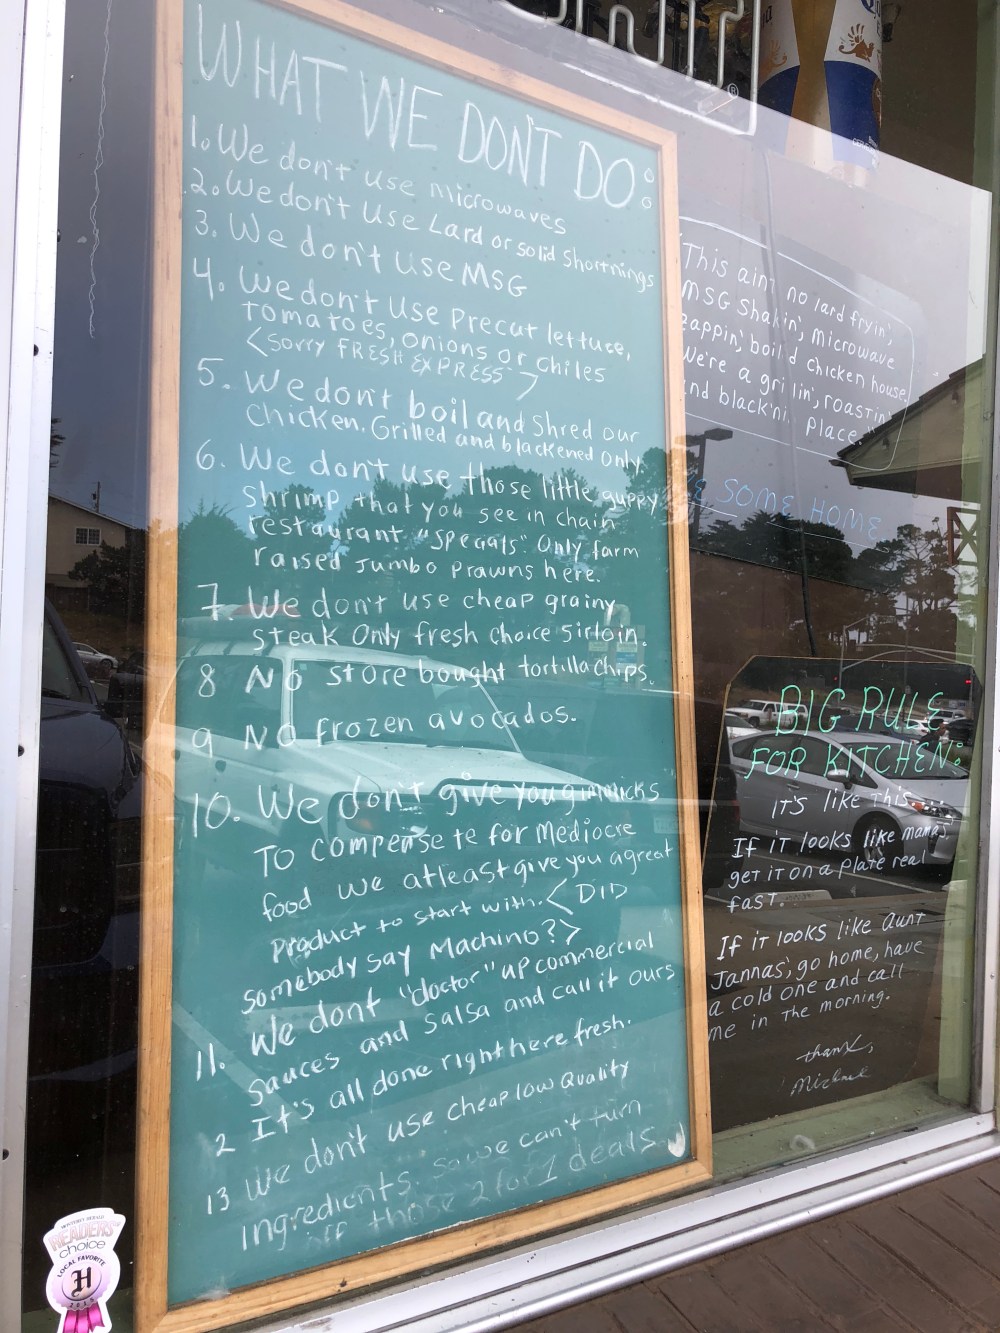 WHAT WE DON'T DO:
1. We don't use microwaves
2. We don't use Lard or solid Shortnings
3. We don't use MSG
4. We don't use Precut lettuce,
tomatoes, onions or chiles
<Sorry FRESH EXPRESS>
5. We don't boil and Shred our
Chicken. Grilled and blackened only.
6. We don't use those little guppy
shrimp that you see in chain
restaurant "specials". Only farm
raised Jumbo Prawns here.
7. We don't use cheap grainy
steak Only fresh choice sirloin.
8 No store bought tortilla chips.
9 No frozen avocados.
10. We don't give you gimmicks
To compensate for Mediocre
food we atleast give you a great
Product to start with. <DID
somebody say Machino?>
11. We dont "doctor" up commercial
sauces and salsa and call it ours
2 It's all done right here fresh.
13 We don't use cheap low Quality
ingredients. So we can't turn
off those 2 for 1 deals
"This ain't no lard fryin',
MSG Shakin', microwave
zappin', boil'd chicken house.
We're a grillin', roastin'
and black'nin' Place."
SOME HOME
BIG RULE
FOR KITCHEN:
IT'S like this
If it looks like mama's,
get it on a plate real
fast.
If it looks like aunt
Jannas', go home, have
a cold one and call
me in the morning.
thanx,
Michael
MONTEREY HERALD
READERS'
choice
LOCAL FAVORITE
H